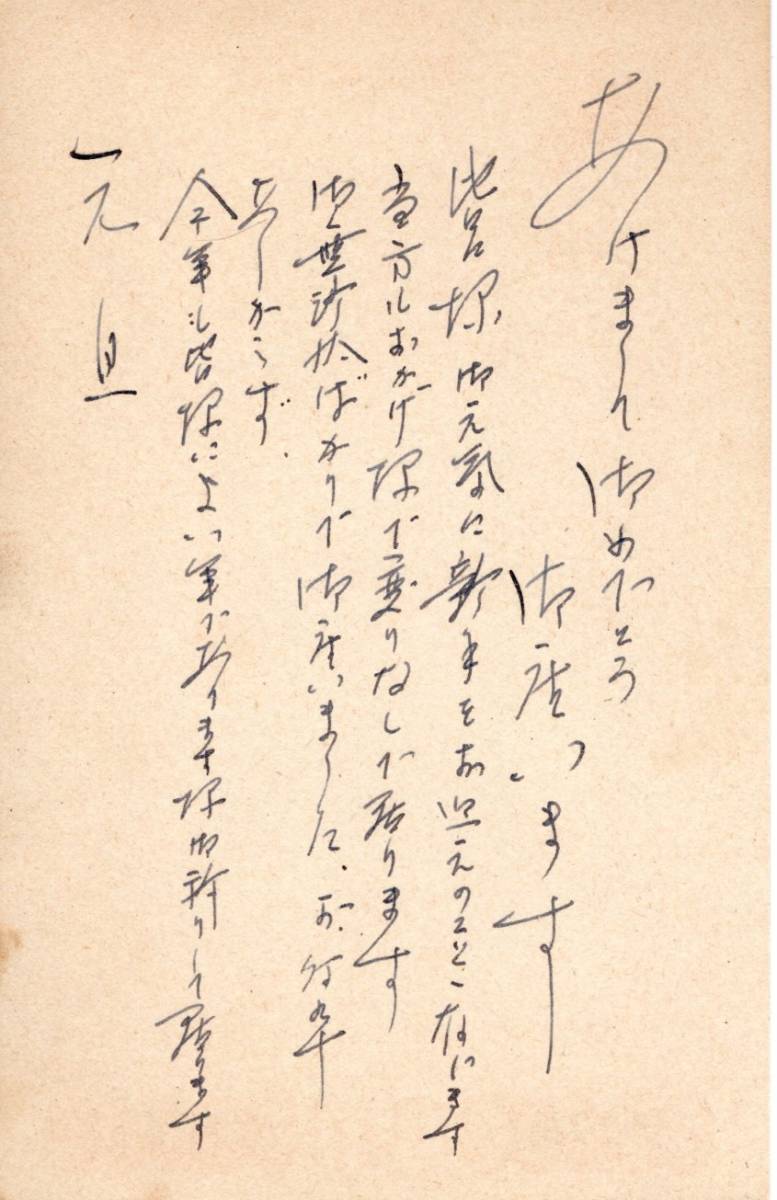 あけまして御めでとう
御座います
皆様御元気に新年をお迎えのことゝ存じます
当方もおかげ様で変りなしで居ります
御無沙汰ばかりで御座いました、が何卒
あしからず、
今年も皆様によい年であります様御祈りして居ります
一元旦